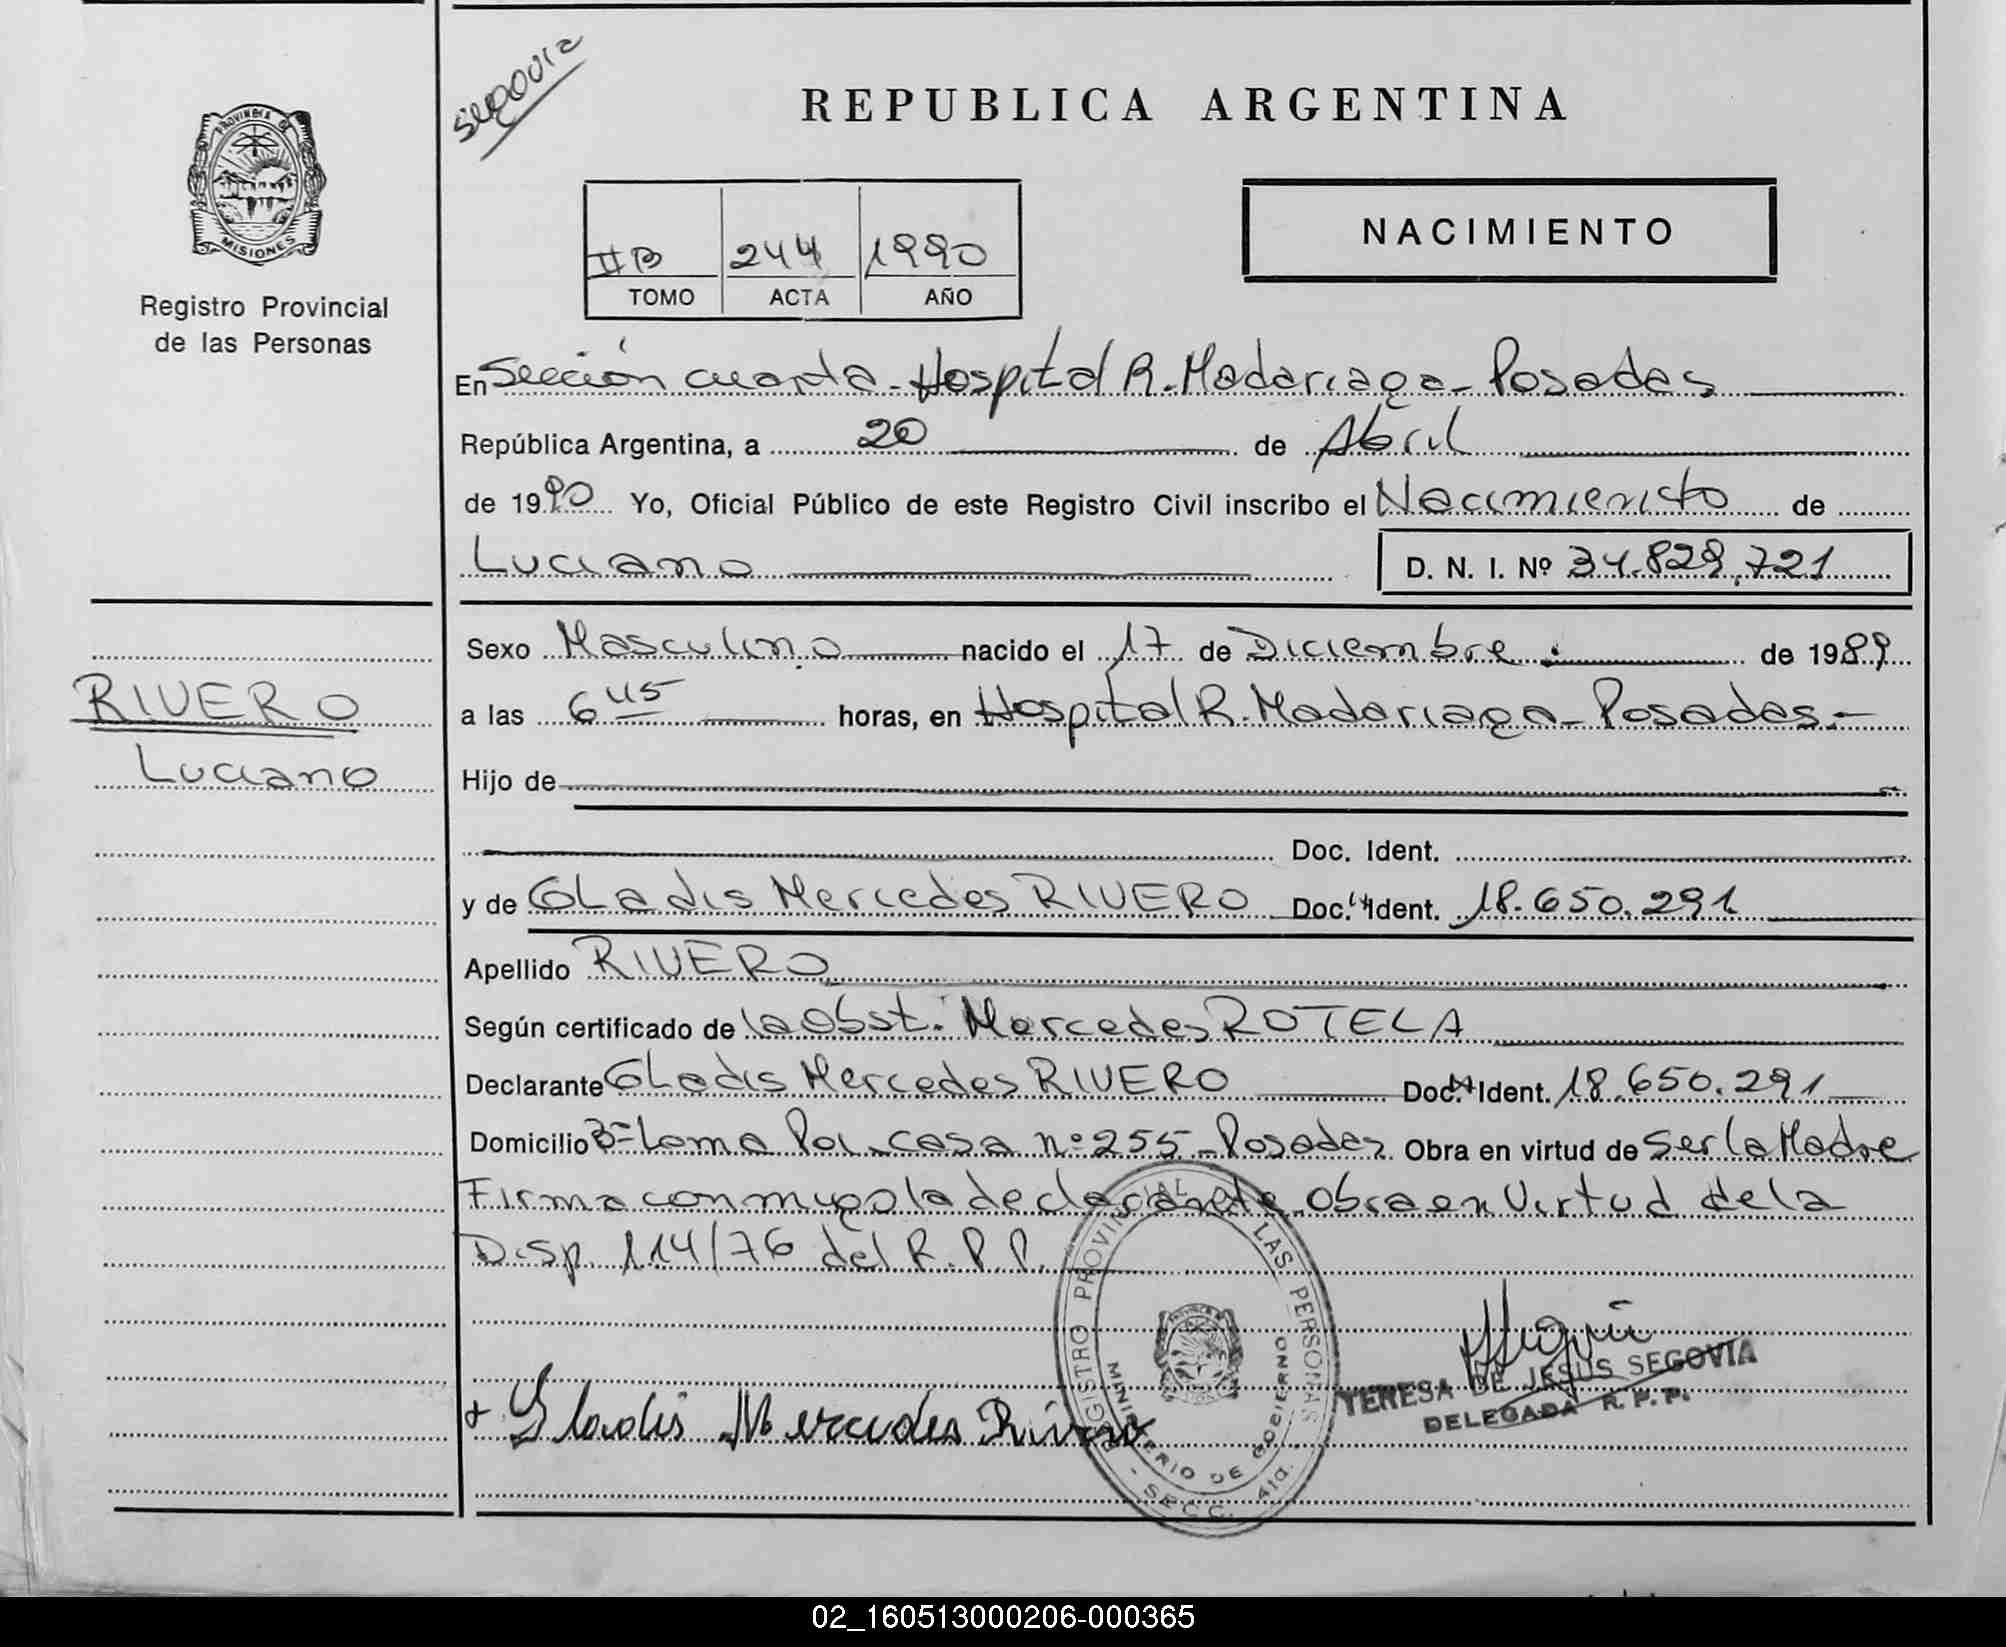 REPUBLICA ARGENTINA
PROVINCIA DE
MISIONES
Registro Provincial
de las Personas
II B 244 1990
TOMO ACTA AÑO
NACIMIENTO
En Sección cuarta - Hospital R. Madariaga - Posadas
República Argentina, a 20 de Abril
de 1990 Yo, Oficial Público de este Registro Civil inscribo el Nacimiento de
Luciano D. N. I. Nº 34.829.721
Sexo Masculino nacido el 17 de Diciembre de 1989
RIVERO
a las 6 45 horas, en Hospital R. Madariaga - Posadas.-
Luciano
Hijo de
Doc. Ident.
y de GLadis Mercedes RIVERO Doc. Ident. 18.650.291
Apellido RIVERO
Según certificado de la Obst. Mercedes ROTELA
Declarante GLadis Mercedes RIVERO Doc. Ident. 18.650.291
Domicilio Bº Loma Poi - casa nº 255 - Posadas Obra en virtud de Ser la Madre
Firma conmigo la declarante. Obra en Virtud de la
Disp. 114/76 del R. P. P.
REGISTRO PROVINCIAL DE LAS PERSONAS
MINISTERIO DE GOBIERNO
- SECC. 4ta. -
TERESA DE JESUS SEGOVIA
DELEGADA R. P. P.
Gladis Mercedes Rivero
02_160513000206-000365